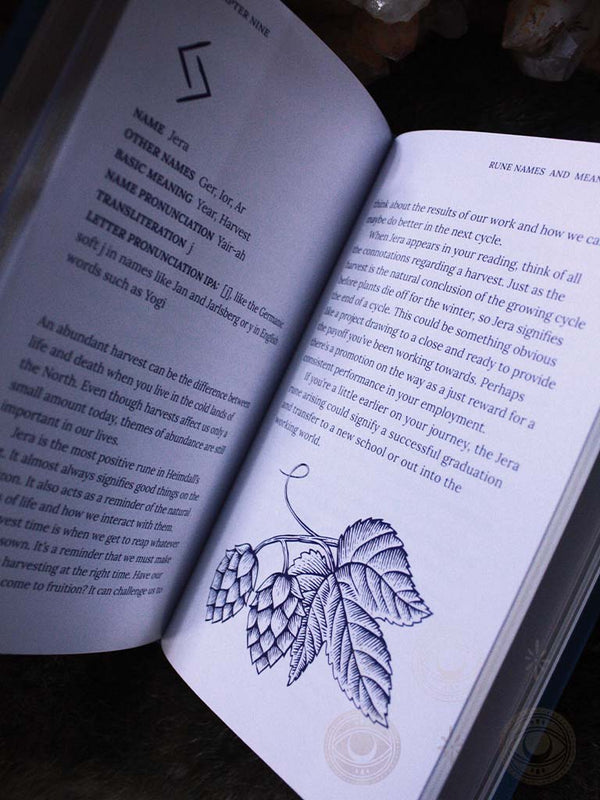 CHAPTER NINE
NAME Jera
OTHER NAMES Ger, Ior, Ar
BASIC MEANING Year, Harvest
NAME PRONUNCIATION Yair-ah
TRANSLITERATION j
LETTER PRONUNCIATION IPA: [j], like the Germanic
soft j in names like Jan and Jarlsberg or y in English
words such as Yogi
An abundant harvest can be the difference between
life and death when you live in the cold lands of
the North. Even though harvests affect us only a
small amount today, themes of abundance are still
important in our lives.
Jera is the most positive rune in Heimdall's
It almost always signifies good things on the
It also acts as a reminder of the natural
of life and how we interact with them.
time is when we get to reap whatever
sown. It's a reminder that we must make
harvesting at the right time. Have our
come to fruition? It can challenge us to
RUNE NAMES AND
think about the results of our work and how we can
maybe do better in the next cycle.
When Jera appears in your reading, think of all
the connotations regarding a harvest. Just as the
harvest is the natural conclusion of the growing cycle
before plants die off for the winter, so Jera signifies
the end of a cycle. This could be something obvious
like a project drawing to a close and ready to provide
the payoff you've been working towards. Perhaps
there's a promotion on the way as a just reward for a
consistent performance in your employment.
If you're a little earlier on your journey, the Jera
rune arising could signify a successful graduation
and transfer to a new school or out into the
working world.